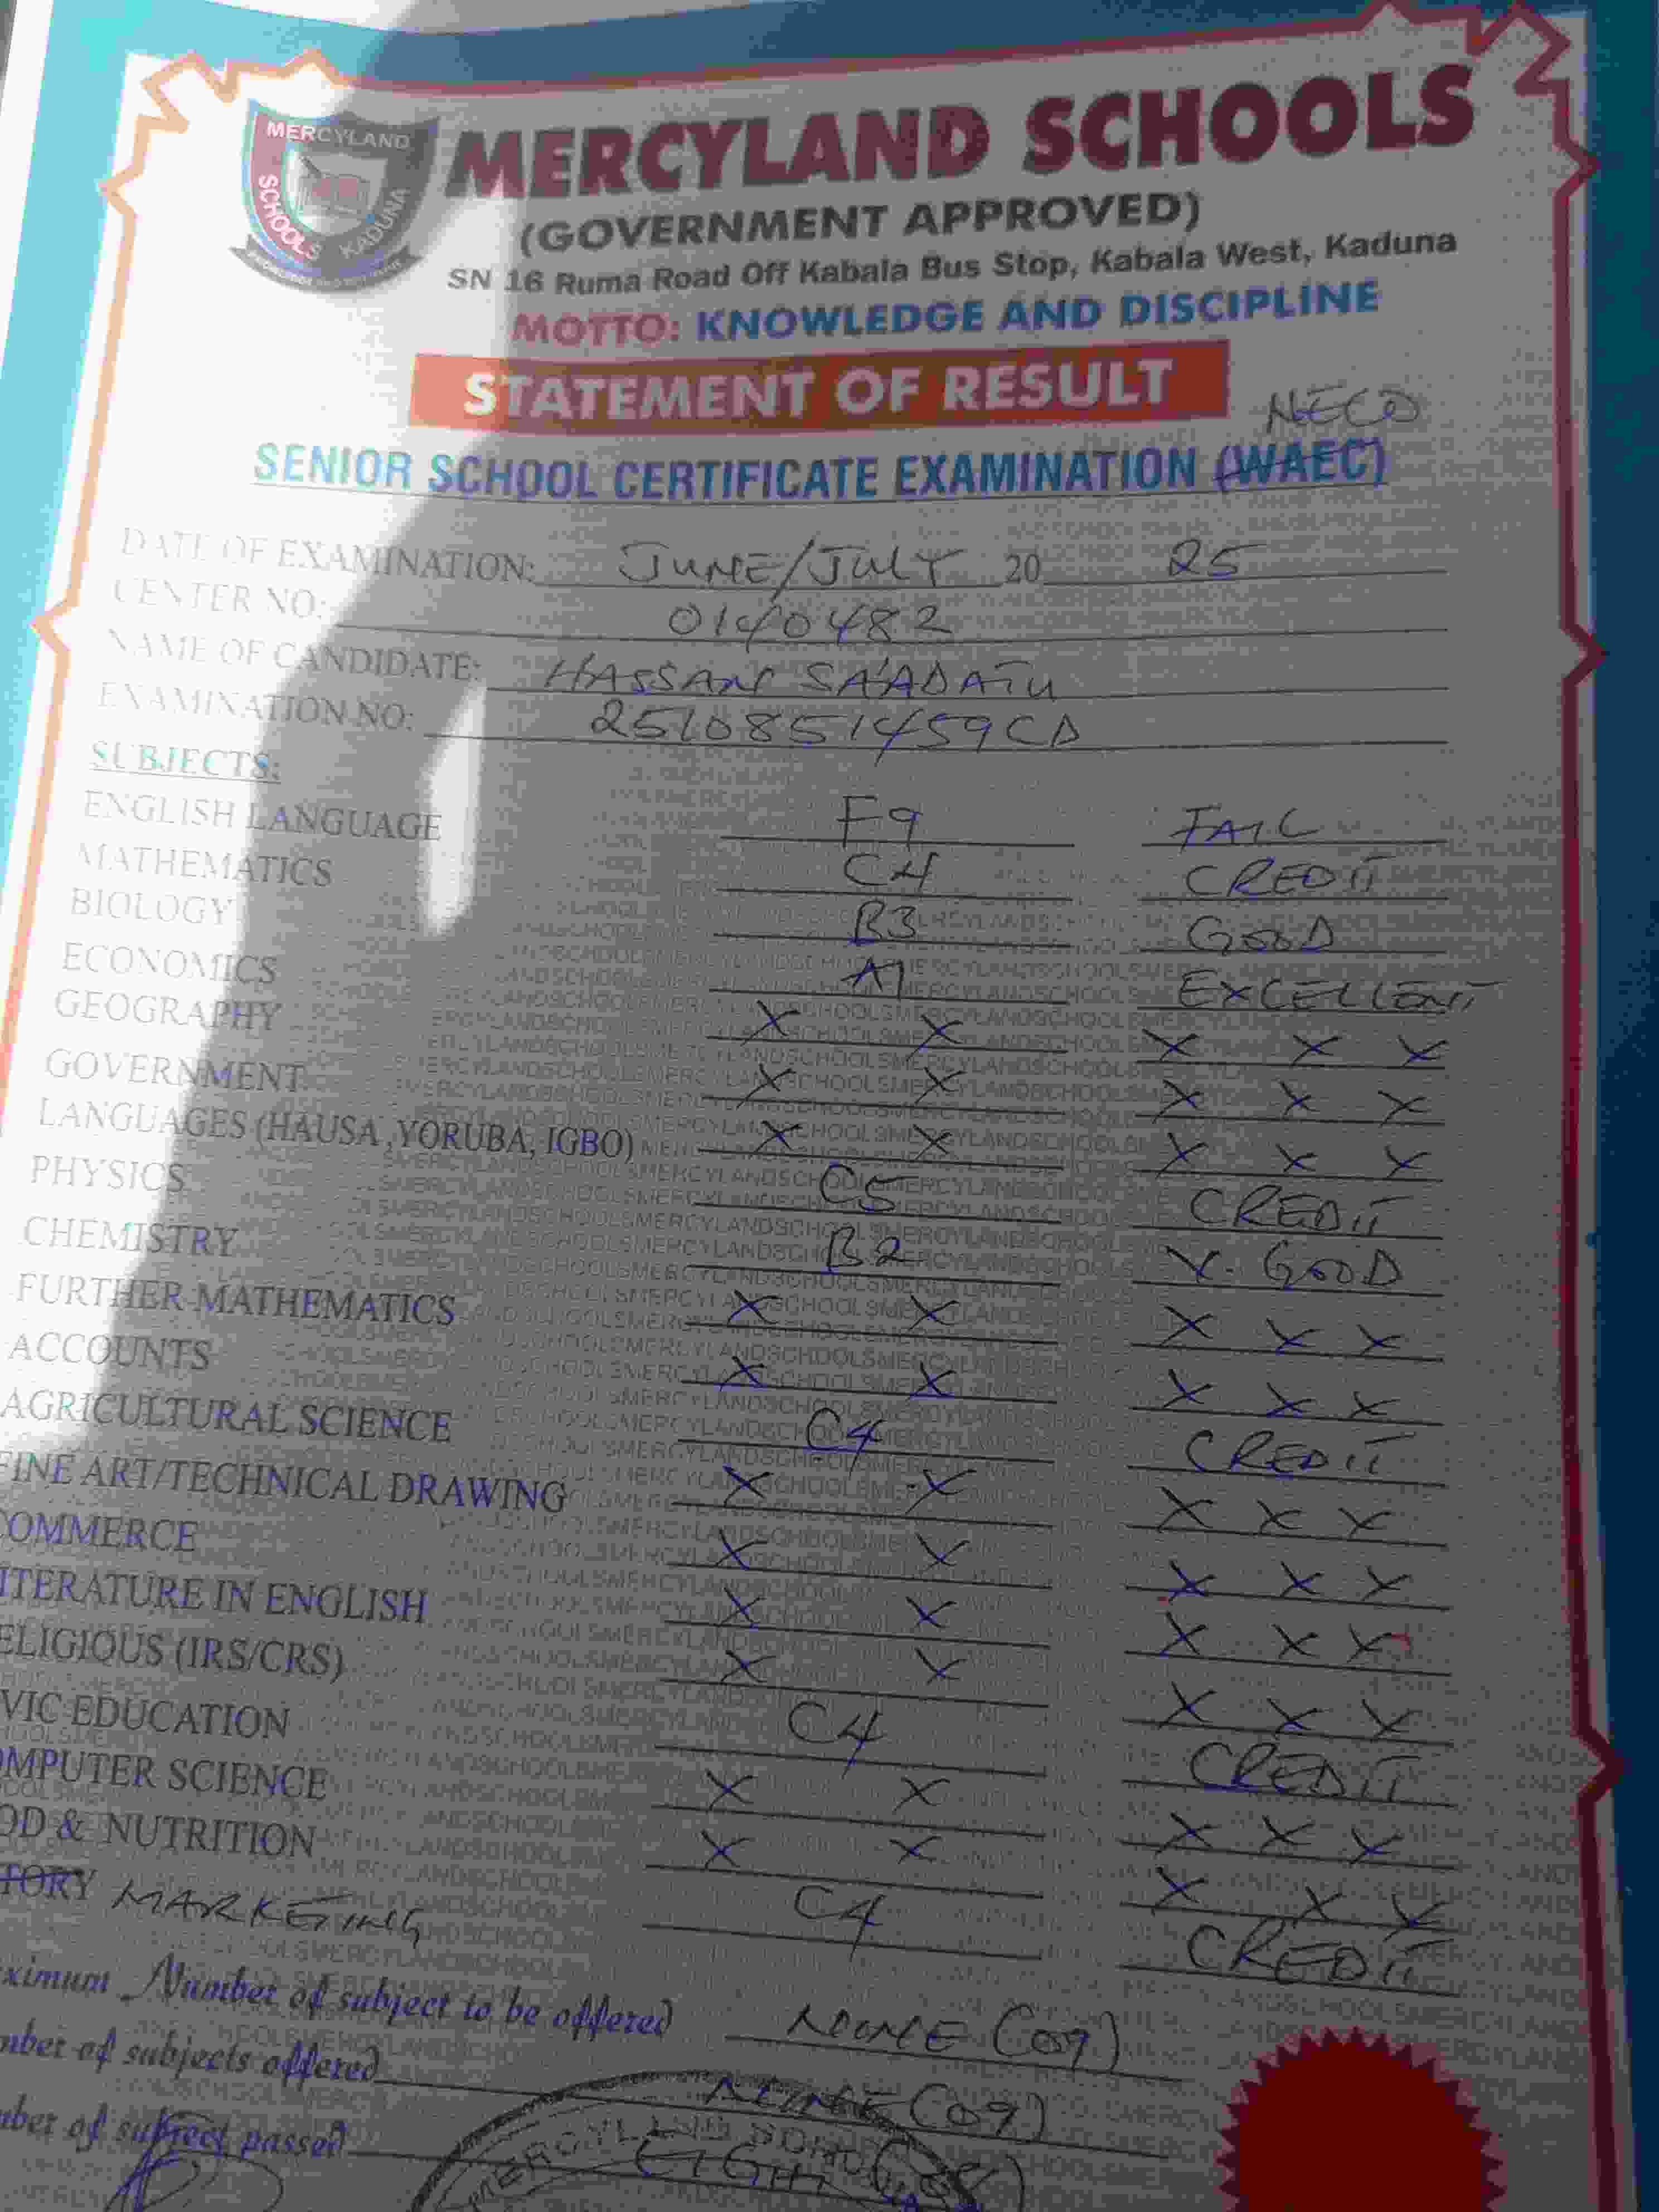 MERCYLAND
SCHOOLS KADUNA
MERCYLAND SCHOOLS
(GOVERNMENT APPROVED)
SN 16 Ruma Road Off Kabala Bus Stop, Kabala West, Kaduna
MOTTO: KNOWLEDGE AND DISCIPLINE
STATEMENT OF RESULT
NECO
SENIOR SCHOOL CERTIFICATE EXAMINATION (WAEC)
DATE OF EXAMINATION: JUNE/JULY 20 25
CENTER NO: 0140482
NAME OF CANDIDATE: HASSAN SA'ADATU
EXAMINATION NO: 2510851459CD
SUBJECTS:
ENGLISH LANGUAGE F9 FAIL
MATHEMATICS C4 CREDIT
BIOLOGY B3 GOOD
ECONOMICS A1 EXCELLENT
GEOGRAPHY X X X X X
GOVERNMENT X X X X X
LANGUAGES (HAUSA ,YORUBA, IGBO) X X X X X
PHYSICS C5 CREDIT
CHEMISTRY B2 V. GOOD
FURTHER MATHEMATICS X X X X X
ACCOUNTS X X X X X
AGRICULTURAL SCIENCE C4 CREDIT
FINE ART/TECHNICAL DRAWING X X X X X
COMMERCE X X X X X
ITERATURE IN ENGLISH X X X X X
ELIGIOUS (IRS/CRS) X X X X X
VIC EDUCATION C4 CREDIT
OMPUTER SCIENCE X X X X X
OD & NUTRITION X X X X X
TORY MARKETING C4 CREDIT
ximum Number of subject to be offered NINE (09)
mber of subjects offered NINE (09)
mber of subject passed EIGHT (08)
MERCYLAND SCHOOLS